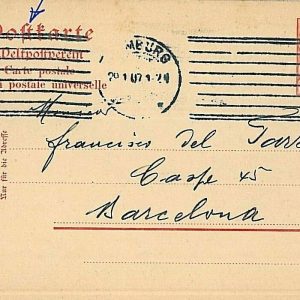 Postkarte
Weltpostverein
Carte postale
postale universelle
MBURG
29.1.07.1-2N
Monsieur
Francisco del
Caspe 45
Barcelona
Nur für die Adresse